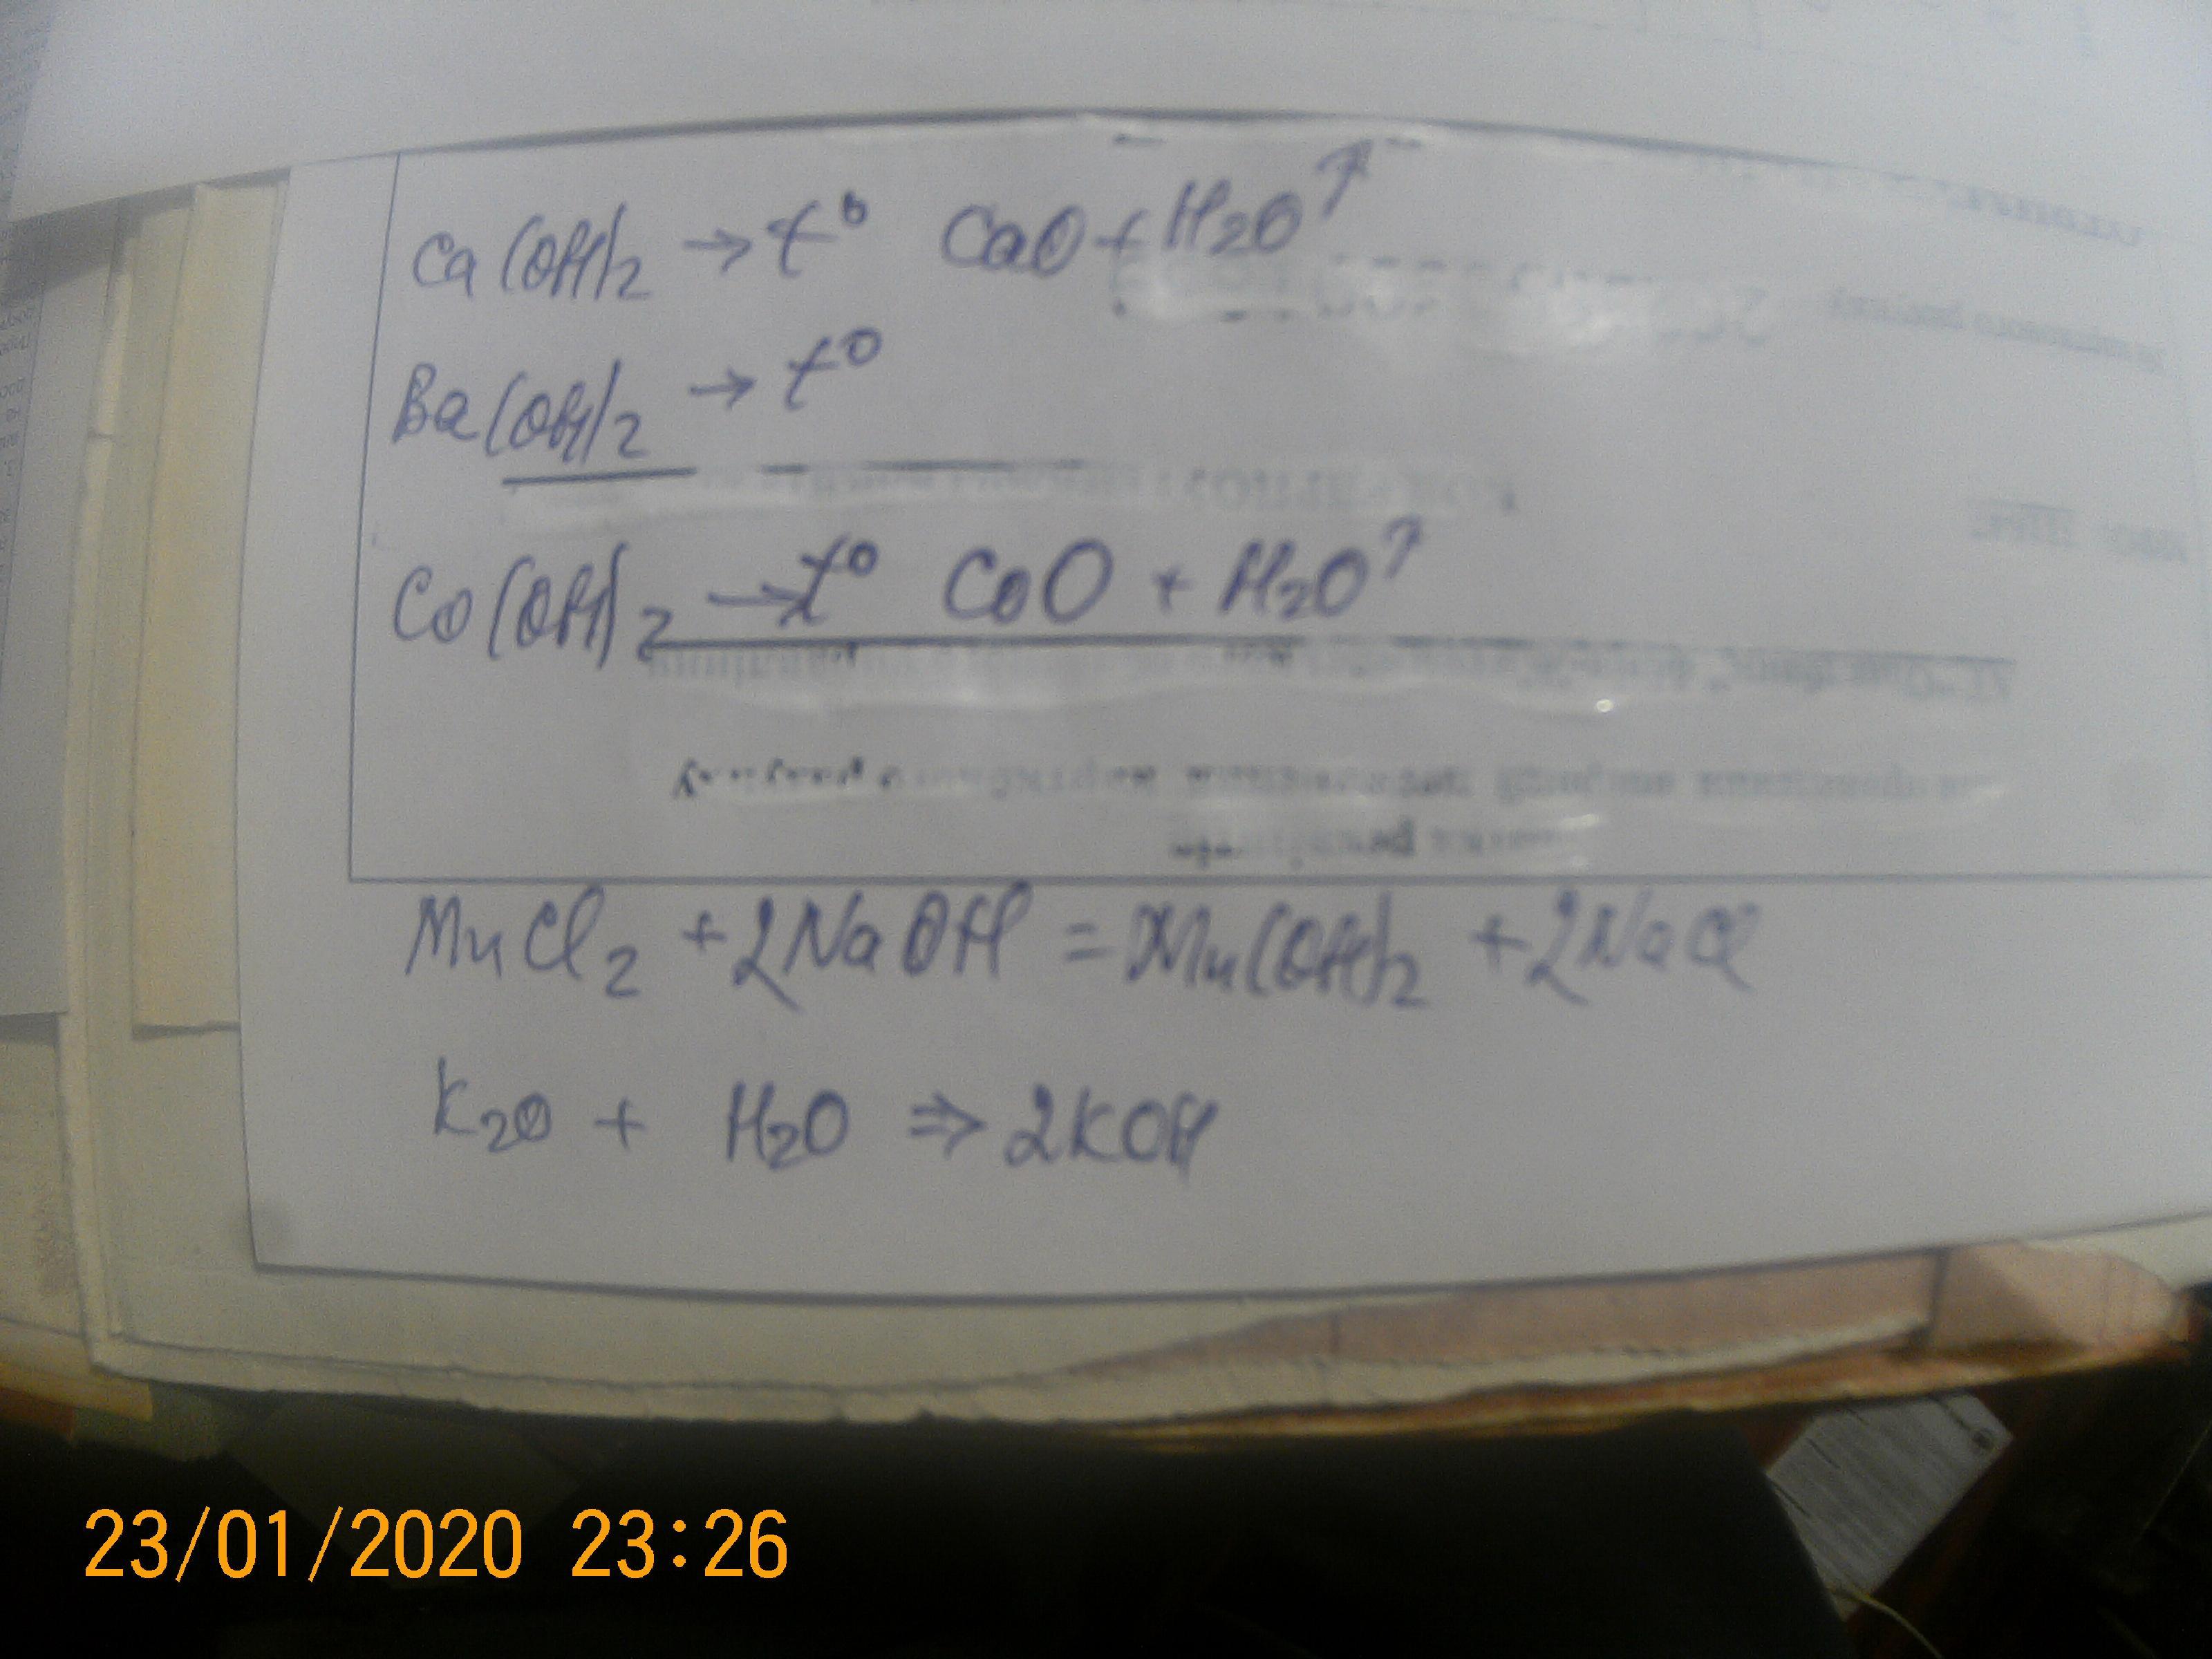 Ca(OH)2 → t° CaO + H2O↑
Ba(OH)2 → t°
Co(OH)2 → t° CoO + H2O↑
MnCl2 + 2NaOH = Mn(OH)2 + 2NaCl
K2O + H2O ⇒ 2KOH
23/01/2020 23:26